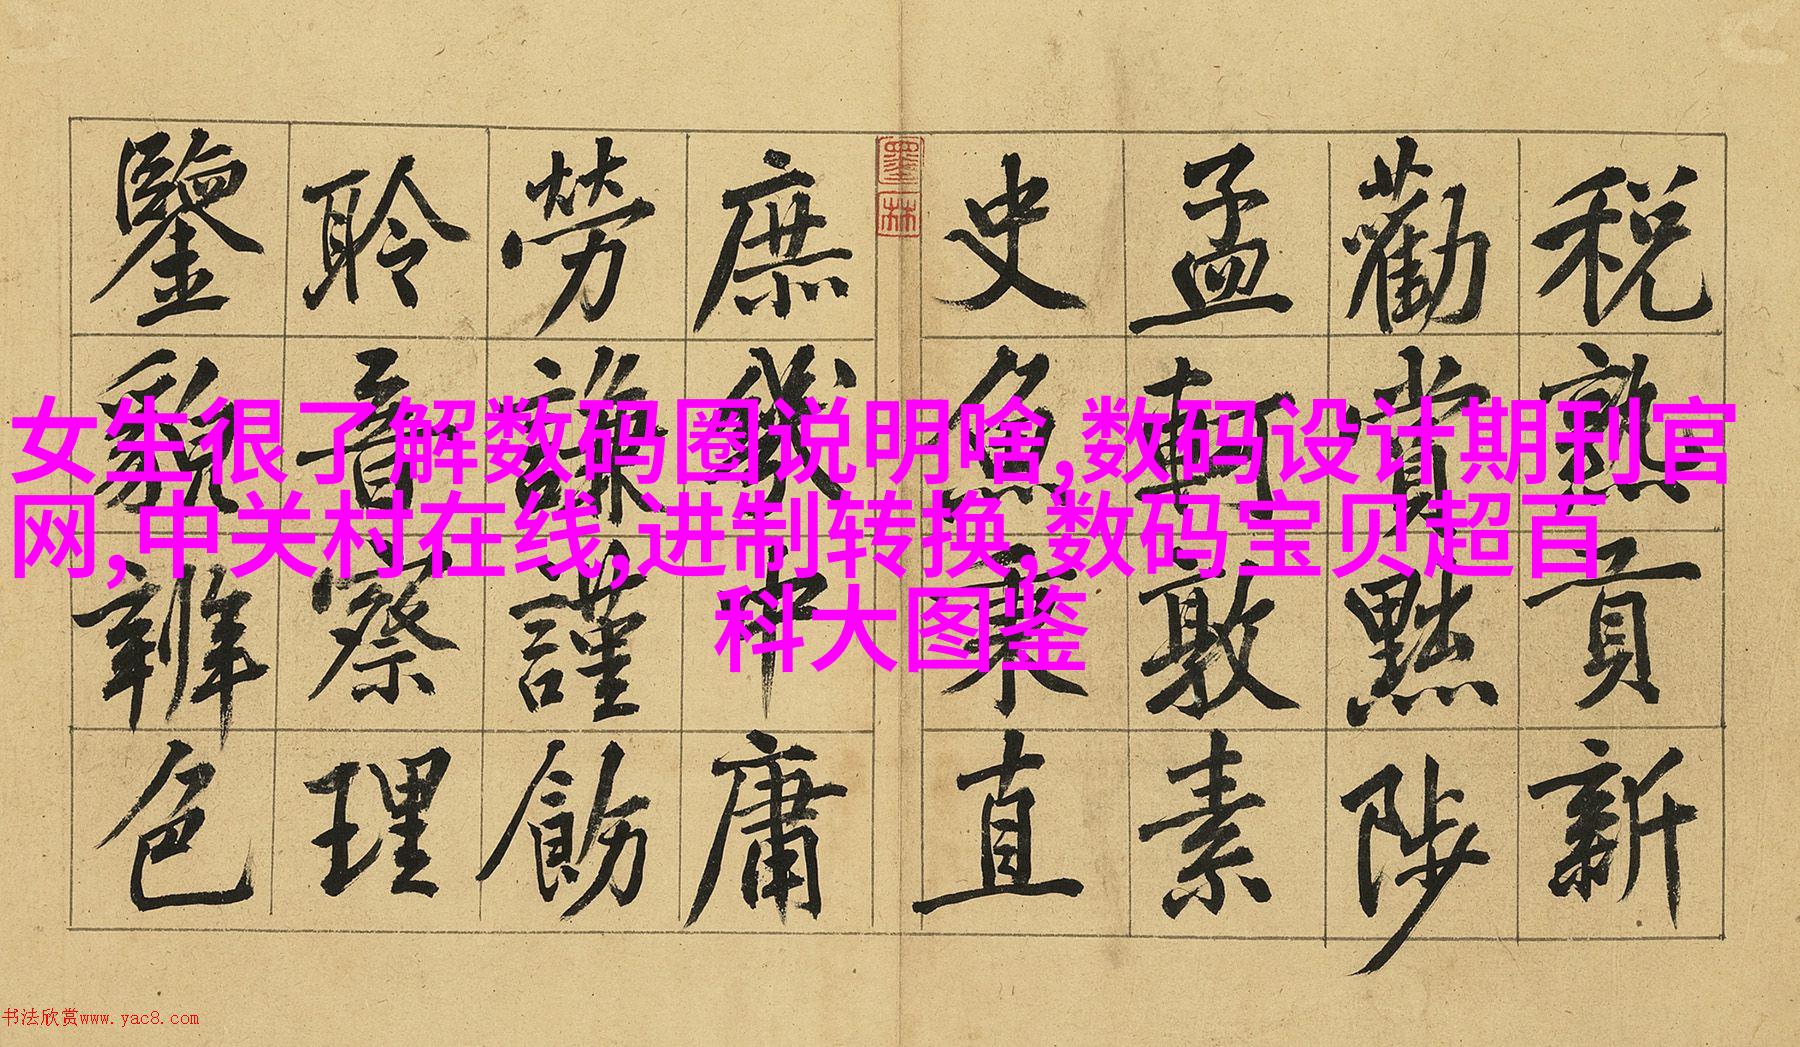 税熟貢新
勸賞黜陟
孟軻敦素
史魚秉直
墨林
庶幾中庸
勞謙謹飭
聆音察理
鑒貌辨色
女生很了解数码圈说明啥,数码设计期刊官
网,中关村在线,进制转换,数码宝贝超百
科大图鉴
书法欣赏www.yac8.com